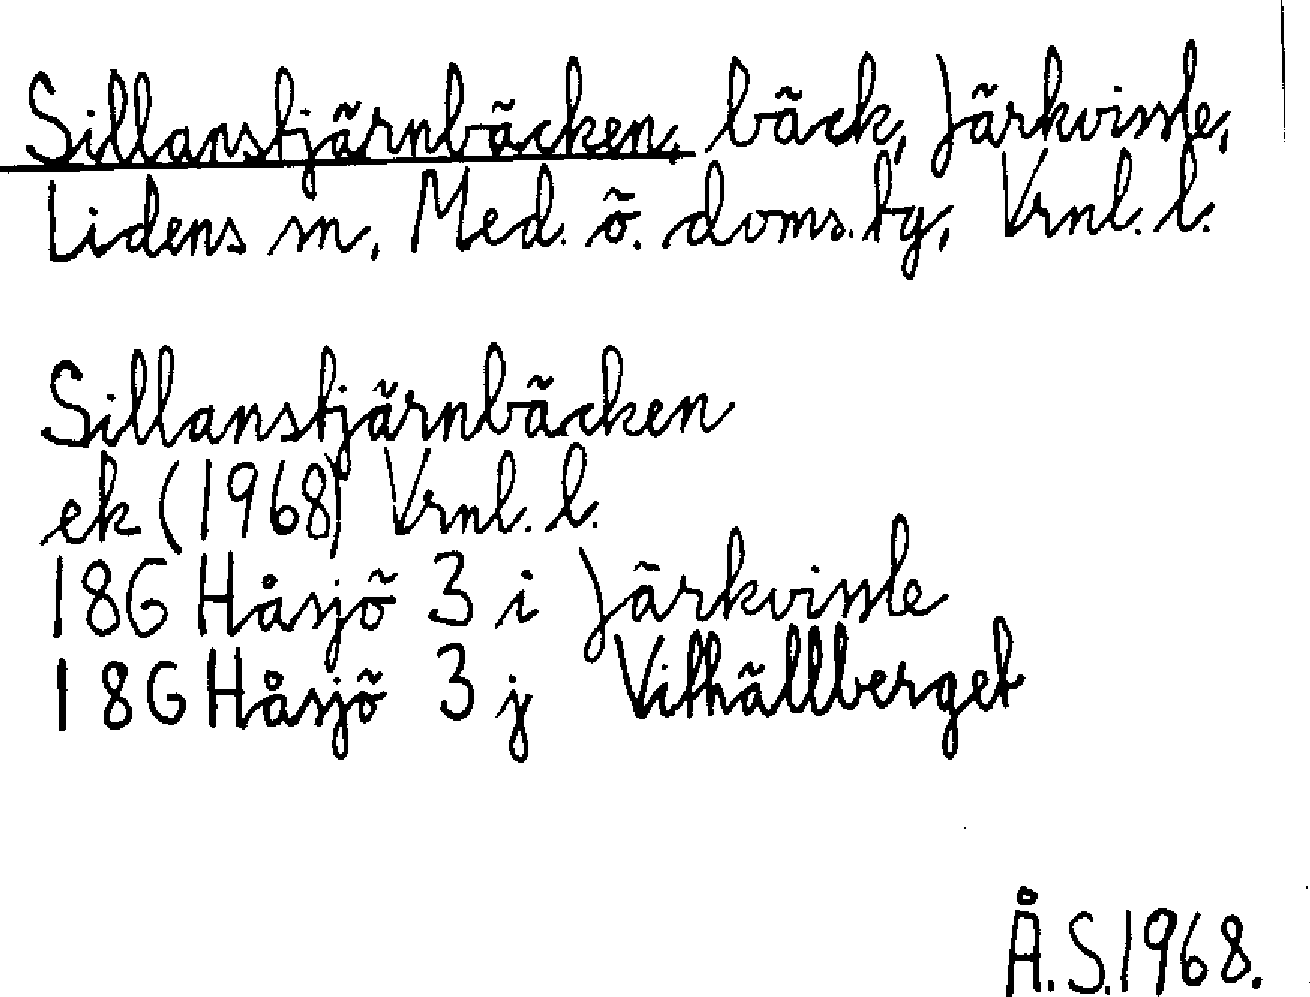 Sillanstjärnbäcken, bäck, Järkvissle,
Lidens sn, Med. ö. doms.tg, Vrnl. l.
Sillanstjärnbäcken
ek (1968) Vrnl. l.
18G Håsjö 3 i Järkvissle
18G Håsjö 3 j Vithällberget
Å.S.1968.